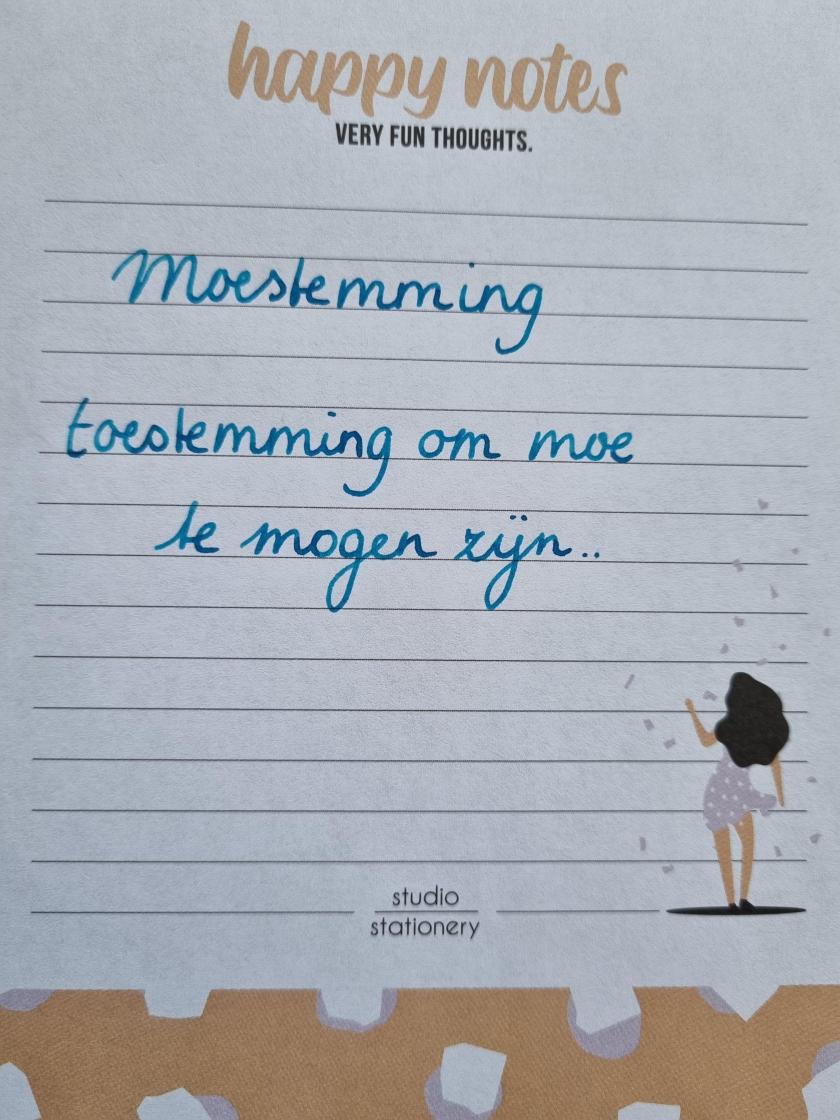 happy notes
VERY FUN THOUGHTS.
Moestemming
toestemming om moe
te mogen zijn..
studio
stationery